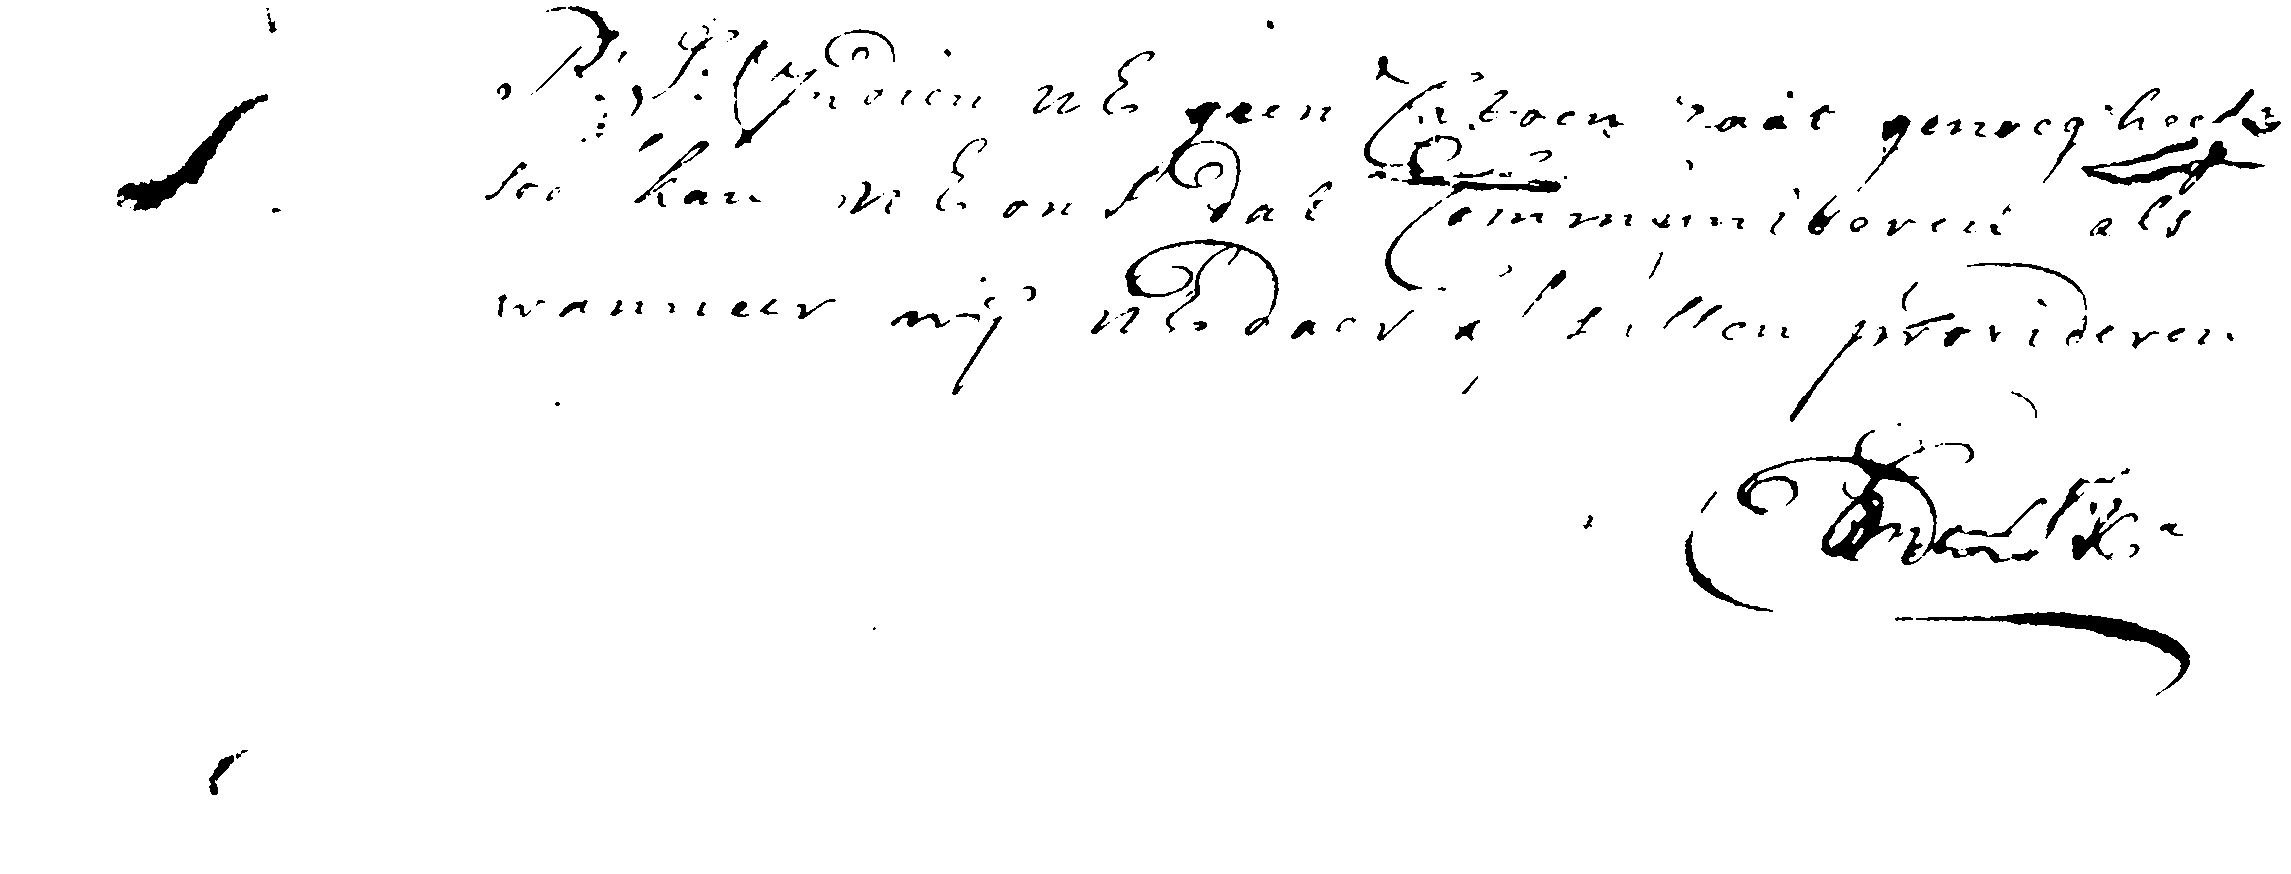 P: S: Indien UE geen Citroen zaat genoeg heeft
soo kan UE ons dat Communiceren als
wanneer wij UE daer a sullen provideren